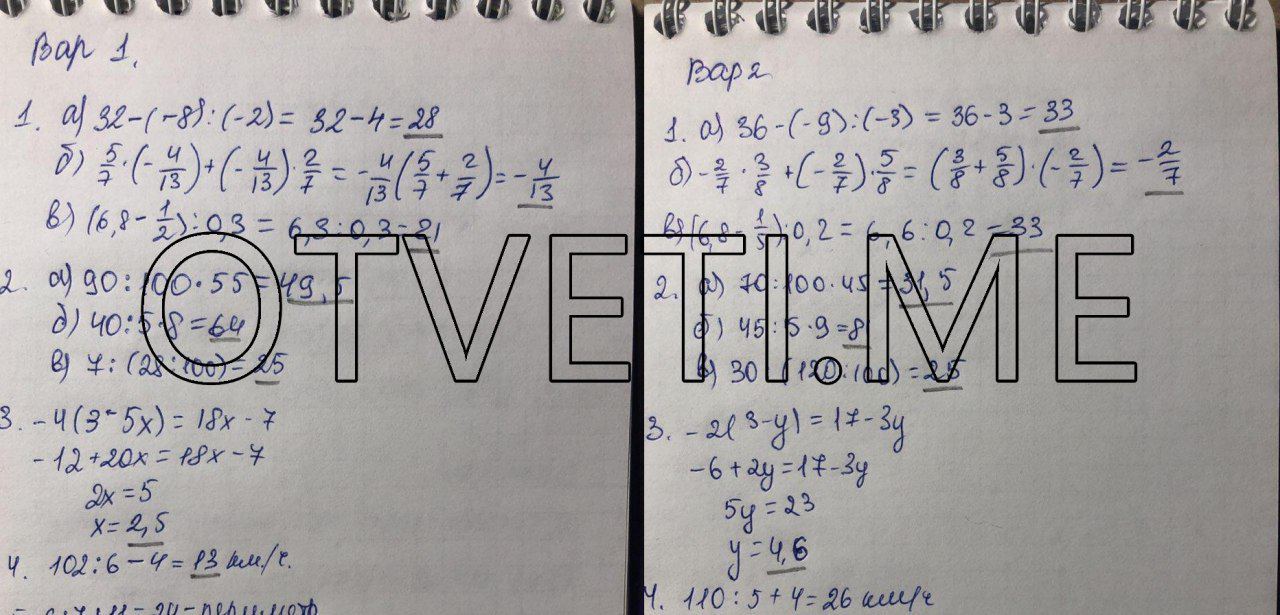 Вар 1.
1. а) 32-(-8):(-2) = 32-4 = 28
б) 5/7·(-4/13)+(-4/13)·2/7 = -4/13(5/7+2/7) = -4/13
в) (6,8-1/2):0,3 = 6,3:0,3 = 21
2. а) 90:100·55 = 49,5
б) 40:5·8 = 64
в) 7:(28:100) = 25
3. -4(3-5x) = 18x-7
-12+20x = 18x-7
2x = 5
x = 2,5
4. 102:6-4 = 13 км/ч.
Вар 2
1. а) 36-(-9):(-3) = 36-3 = 33
б) -2/7·3/8+(-2/7)·5/8 = (3/8+5/8)·(-2/7) = -2/7
в) (6,8-1/5):0,2 = 6,6:0,2 = 33
2. а) 70:100·45 = 31,5
б) 45:5·9 = 81
в) 30:(120:100) = 25
3. -2(3-y) = 17-3y
-6+2y = 17-3y
5y = 23
y = 4,6
4. 110:5+4 = 26 км/ч
OTVETI.ME